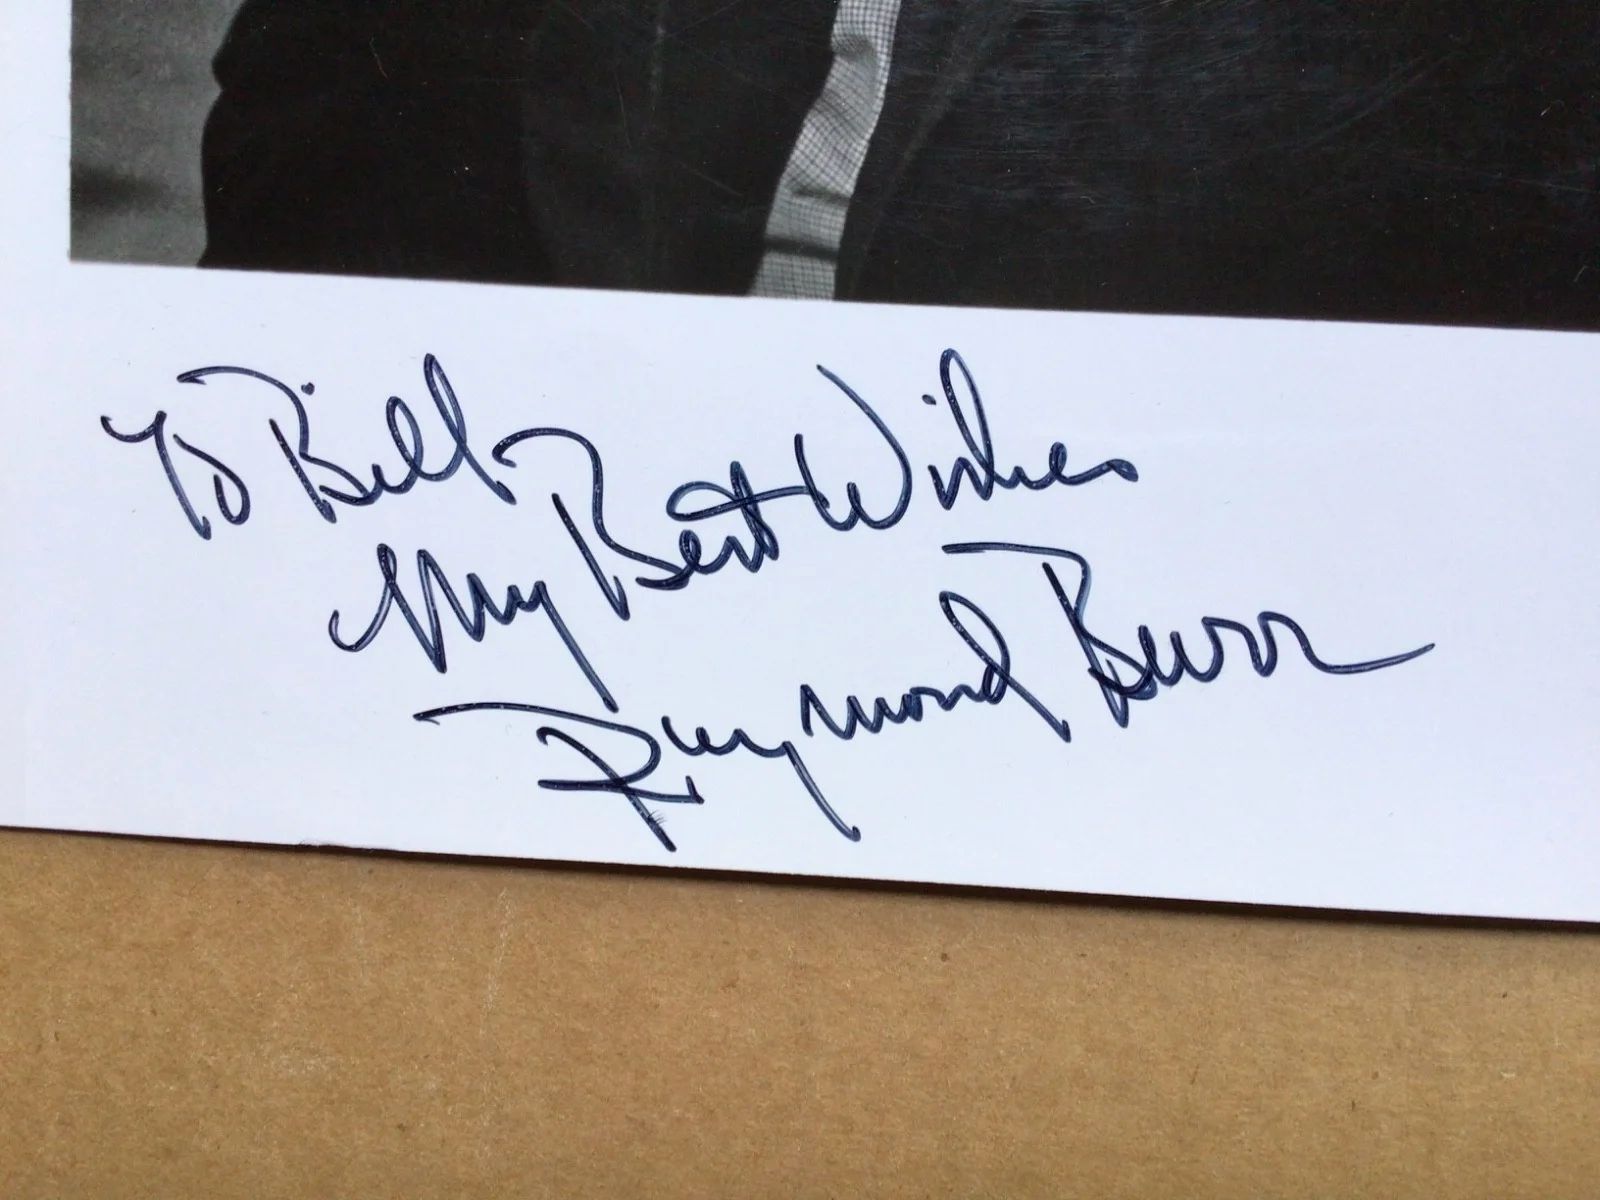 To Bill
My Best Wishes
Raymond Burr